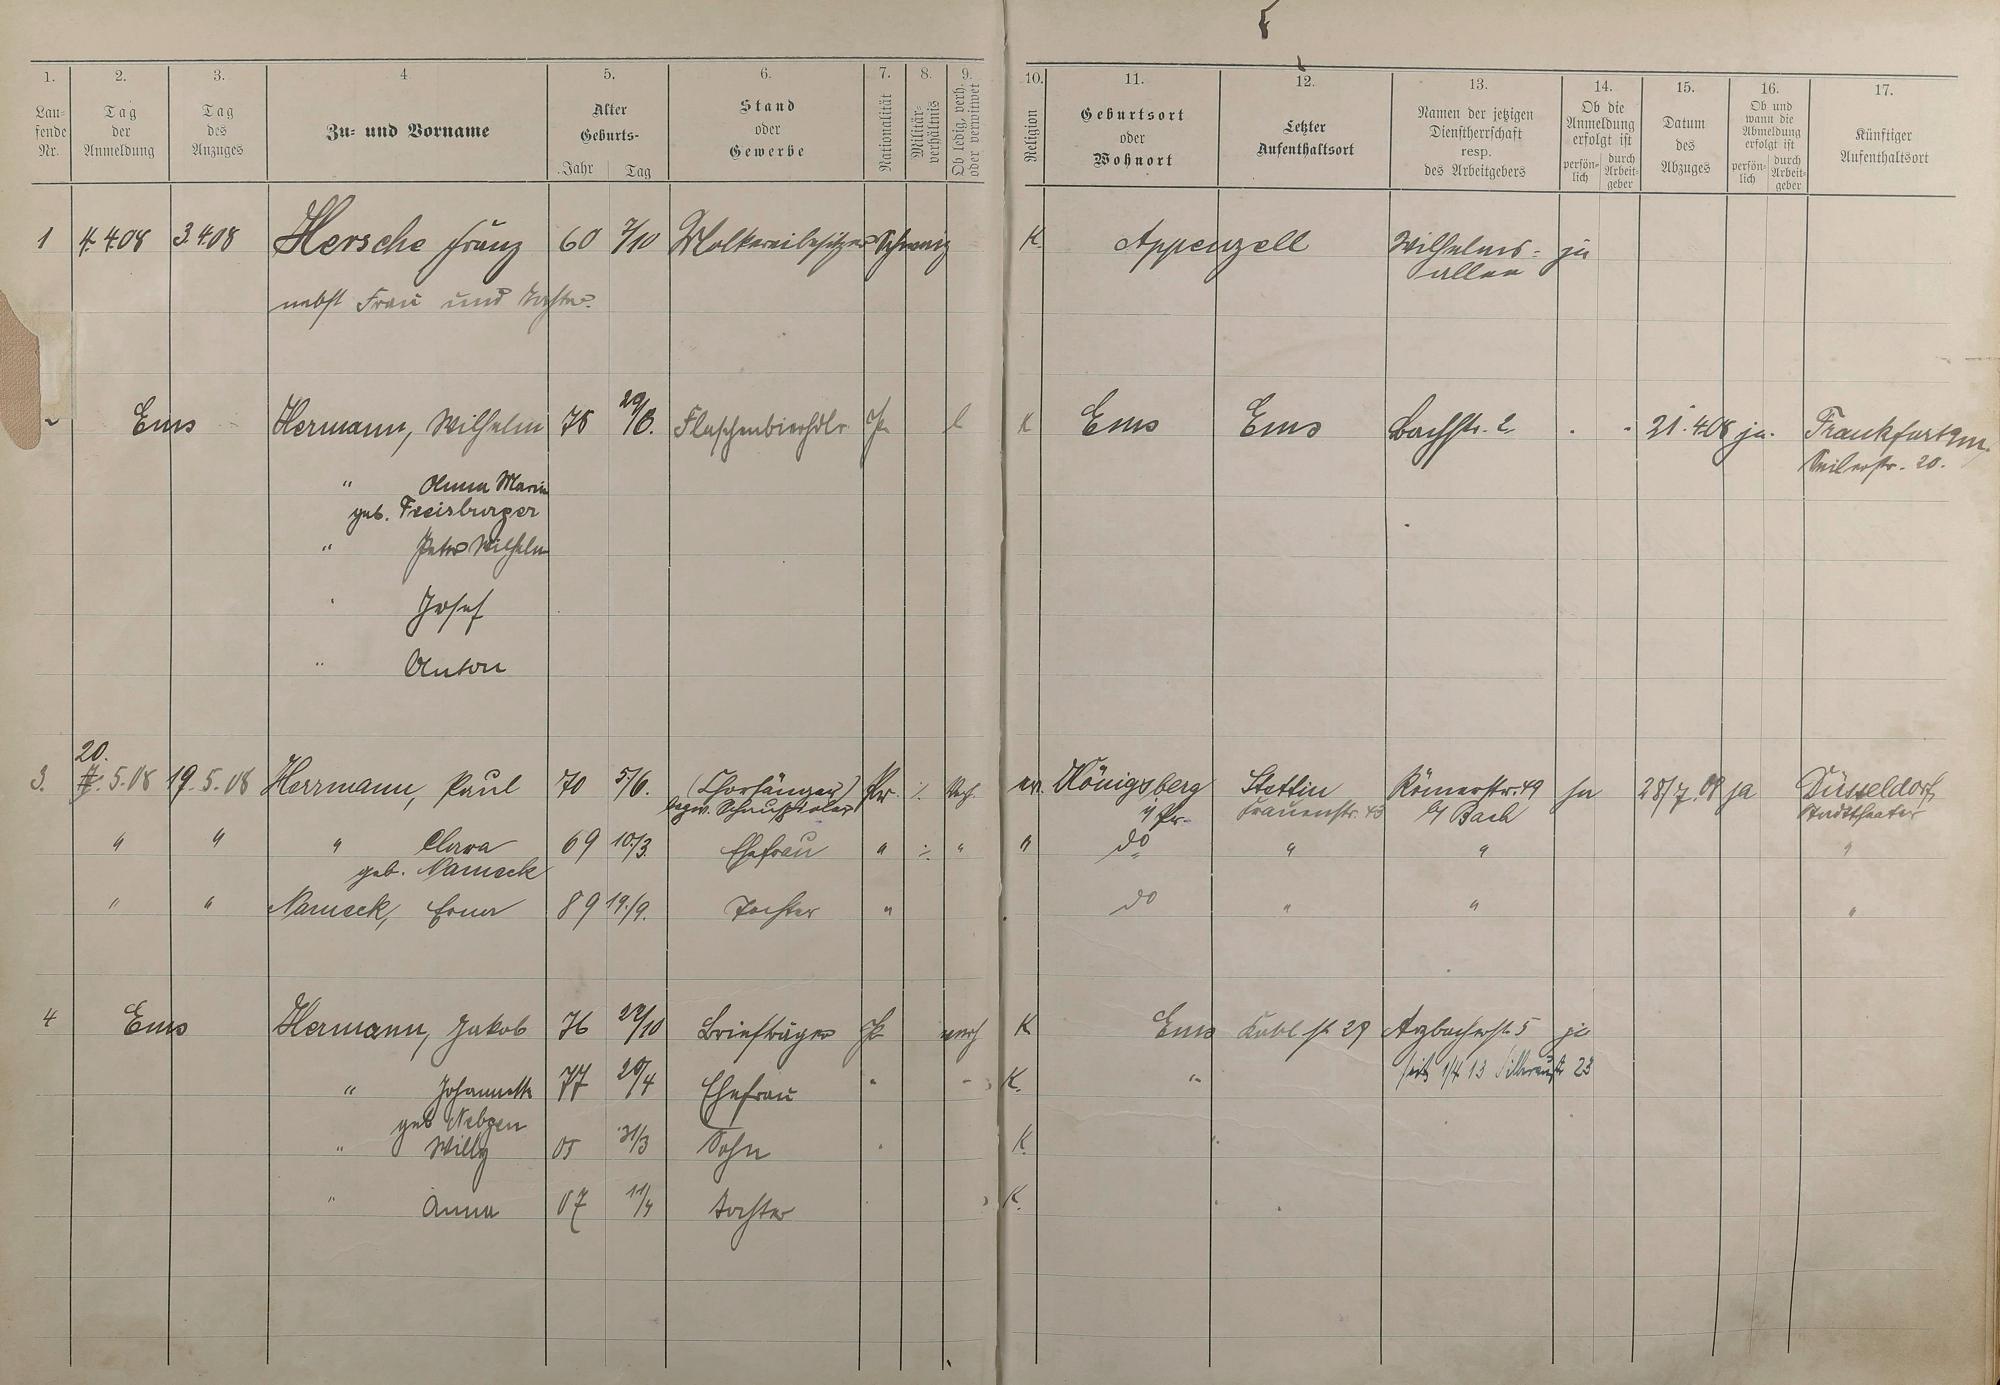 1. 2. 3. 4 5. 6. 7. 8. 9. 10. 11. 12. 13. 14. 15. 16. 17.
Lau-
fende
Nr.
Tag
der
Anmeldung
Tag
des
Anzuges
Zu- und Vorname
Alter
Geburts-
Jahr Tag
Stand
oder
Gewerbe
Nationalität
Militär-
verhältnis
Ob ledig, verh.
oder verwitwet
Religion
Geburtsort
oder
Wohnort
Letzter
Aufenthaltsort
Namen der jetzigen
Dienstherrschaft
resp.
des Arbeitgebers
Ob die
Anmeldung
erfolgt ist
persön-
lich
durch
Arbeit-
geber
Datum
des
Abzuges
Ob und
wann die
Abmeldung
erfolgt ist
persön-
lich
durch
Arbeit-
geber
Künftiger
Aufenthaltsort
1 4.4.08 3.4.08 Hersche Franz 60 7/10 Molkereibesitzer Schweiz K. Appenzell Wilhelms- ja
allee
nebst Frau und Tochter.
Ems Hermann, Wilhelm 78 29/6. Flaschenbierhdlr Pr. l K Ems Ems Bachstr. 2. 21.4.08 ja. Frankfurt a/m.
Seilerstr. 20.
" Anna Maria
geb. Freisburger
" Peter Wilhelm
Josef
" Anton
20.
3. 5.08 19.5.08 Herrmann, Paul 70 5/6. (Chorsänger) Pr. ./. Verh. ev. Königsberg Stettin Römerstr. 49 ja 28/7.08 ja Düsseldorf,
bezw. Schauspieler i/Pr. Frauenstr. 43 b/ Bach Stadttheater
" " " Clara 69 10./3. Ehefrau " ./. " " do " " "
geb. Nameck
" " Nameck, Erna 89 19./9. Tochter " do " " "
4 Ems Hermann, Jakob 76 22/10 Briefträger Pr. verh K Ems Kobl str 29 Arzbacherstr. 5 ja
seit 1/4 13 Silberaustr 23
" Johannetta 77 20/4 Ehefrau " " K. "
geb Nebgen
" Willy 05 31/3 Sohn " K. "
" Anna 07 11/4 Tochter K. "